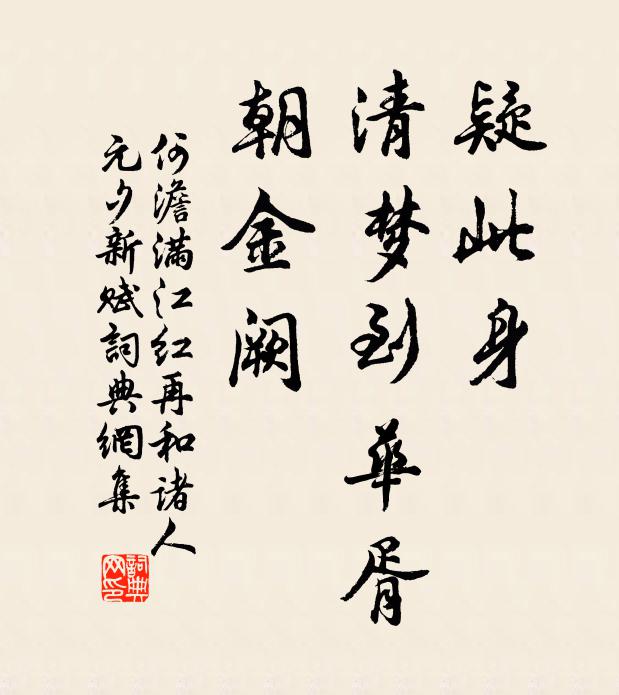 疑此身
清梦到华胥
朝金阙
何澹满江红再和诸人
元夕新赋詞典網集
詞典网印